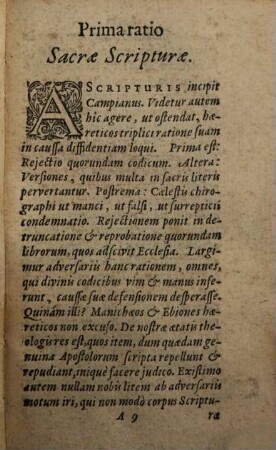 Prima ratio
Sacræ Scripturæ.
A SCRIPTURIS incipit
Campianus. Videtur autem
hic agere, ut ostendat, hæ-
reticos triplici ratione suam
in caussa diffidentiam loqui. Prima est:
Rejectio quorundam codicum. Altera:
Versiones, quibus multa in sacris literis
pervertantur. Postrema: Cælestis chiro-
graphi ut manci, ut falsi, ut surreptitii
condemnatio. Rejectionem ponit in de-
truncatione & reprobatione quorundam
librorum, quos adscivit Ecclesia. Largi-
mur adversariis hanc rationem, omnes,
qui divinis codicibus vim & manus infe-
runt, caussæ suæ defensionem desperasse.
Quinam illi? Manichæos & Ebiones hæ-
reticos non excuso. De nostræ ætatis the-
ologis res est, quos item, dum quædam ge-
nuina Apostolorum scripta repellunt &
repudiant, inique facere judico. Existimo
autem nullam nobis litem ab adversariis
motum iri, qui non modò corpus Scriptu-
A 9 ra